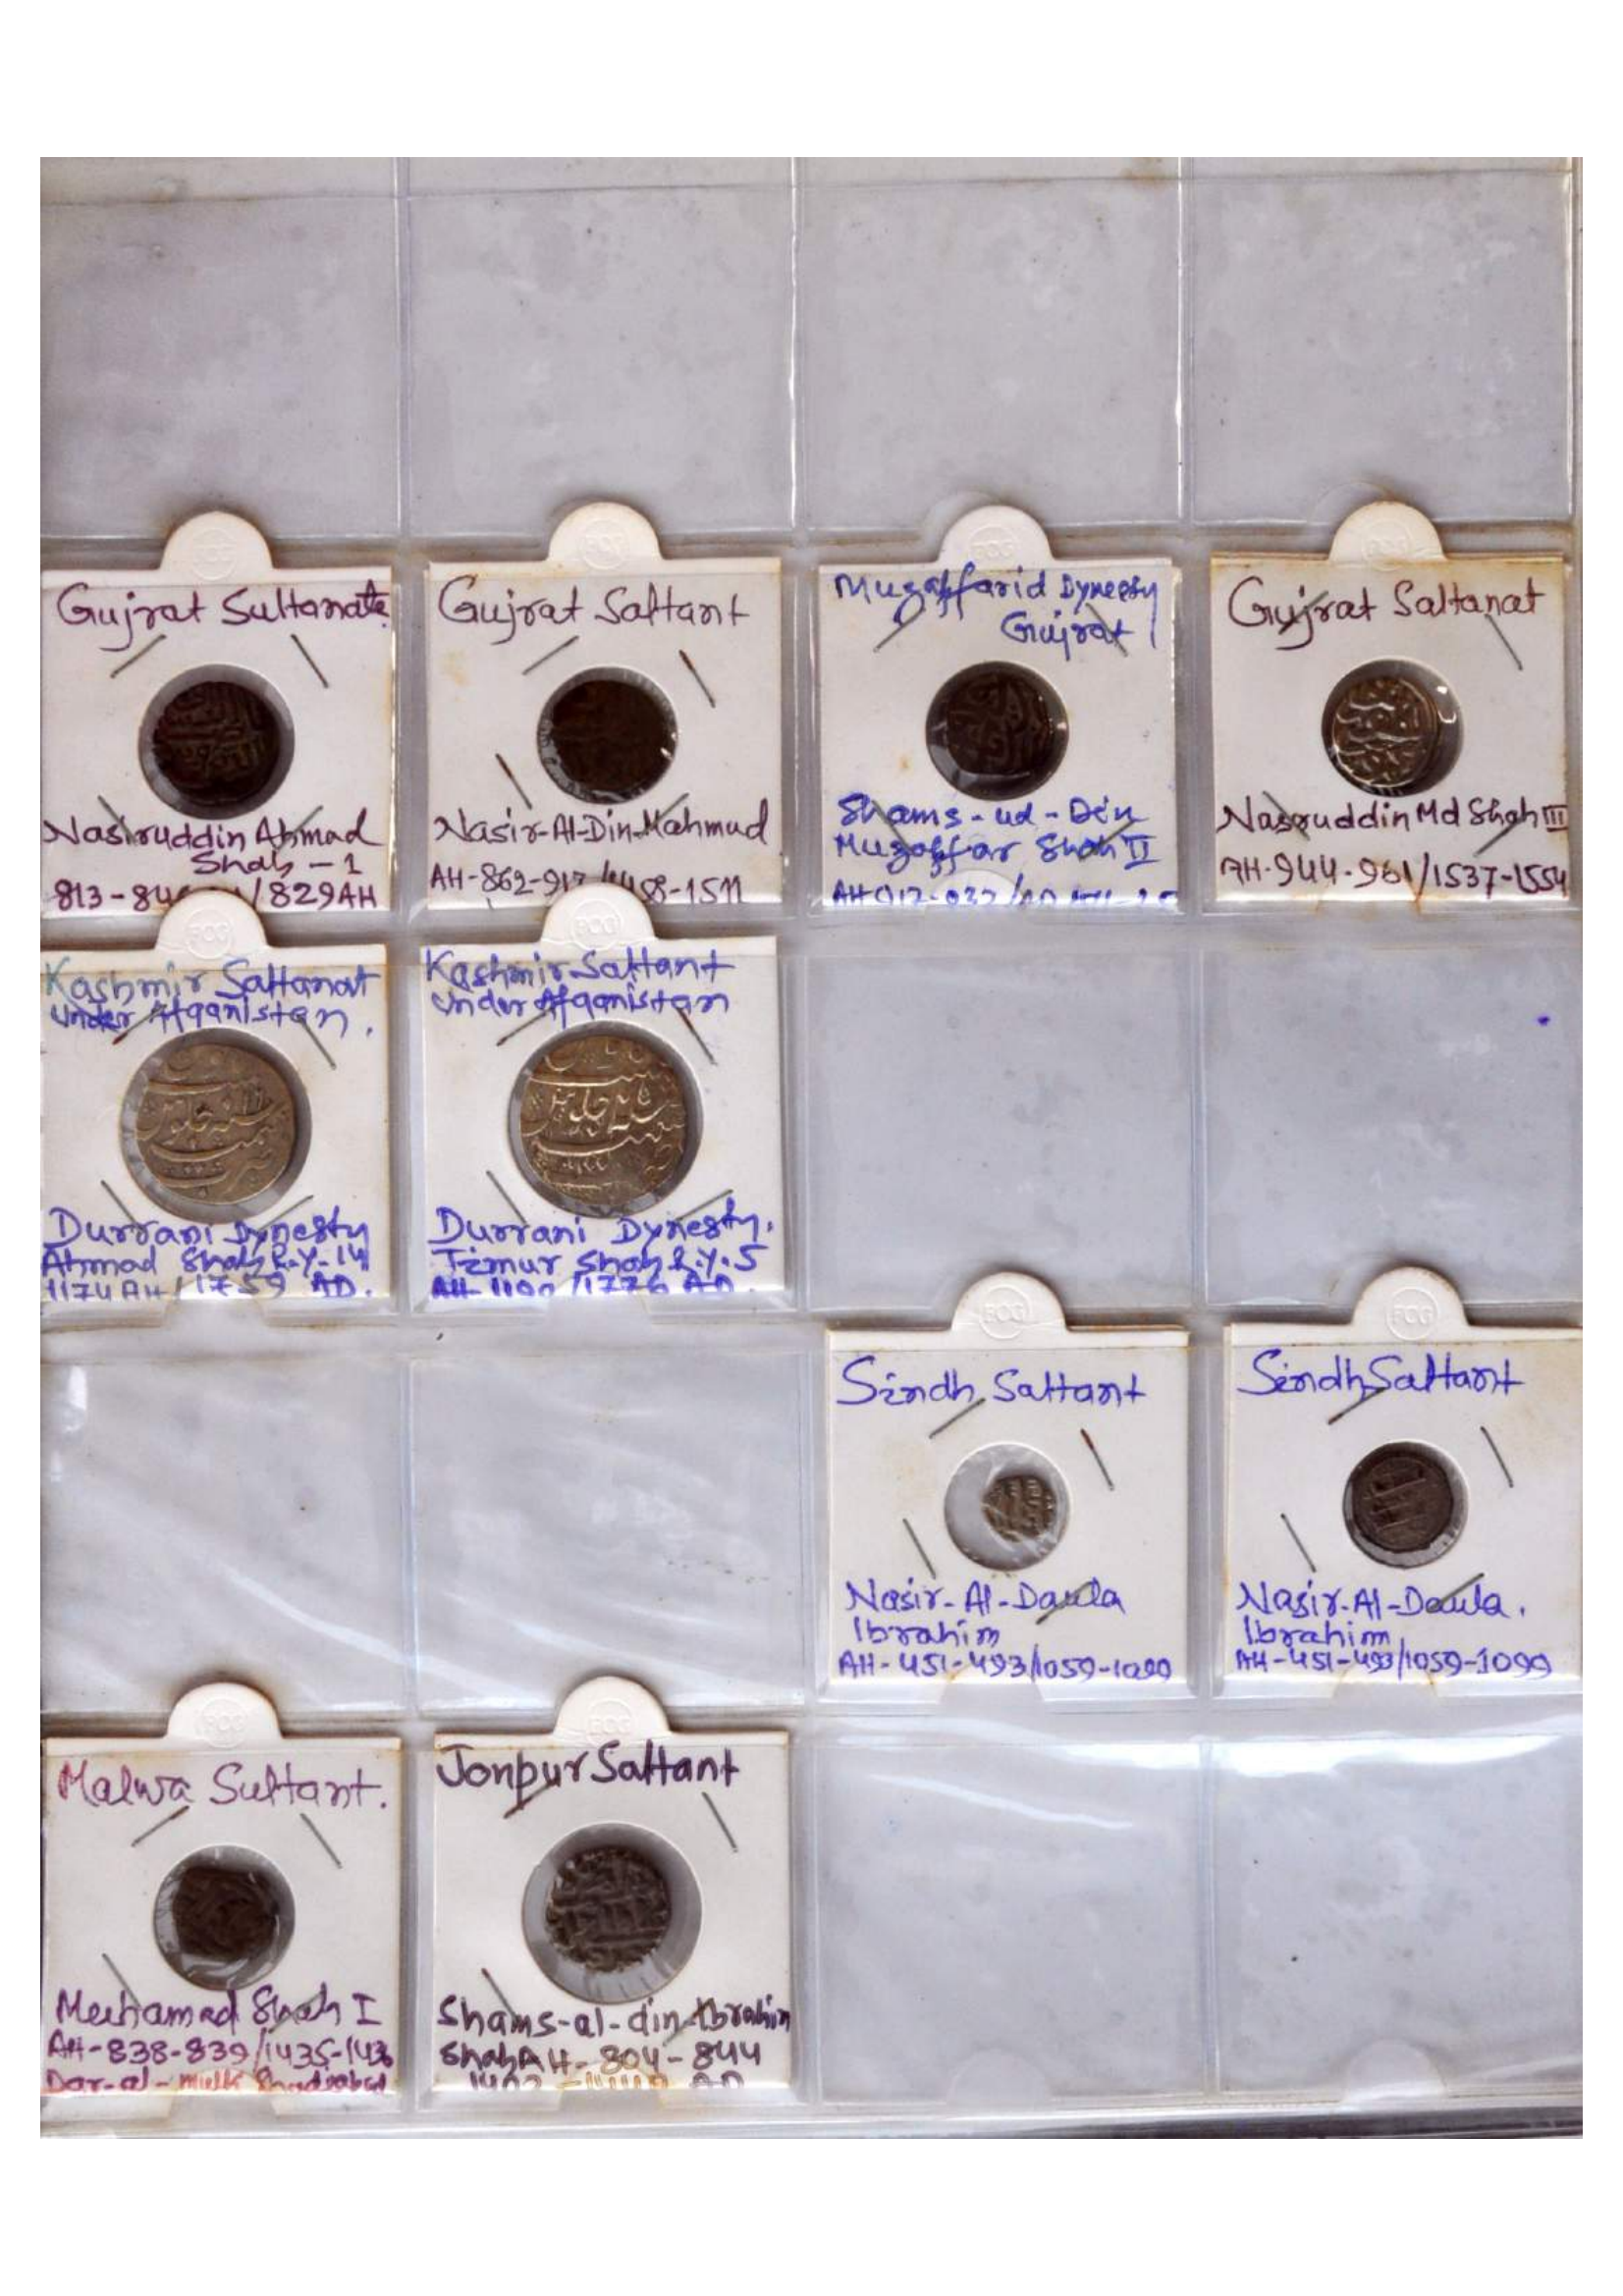 Gujrat Sultanate
Nasiruddin Ahmad
Shah - 1
813-84 /829AH
Gujrat Saltant
Nasir-Al-Din-Mahmud
AH-862-917/1458-1511
Muzaffarid Dynesty
Gujrat
Shams-ud-Din
Muzaffar Shah II
Gujrat Saltanat
Nasruddin Md Shah III
AH-944-961/1537-1554
Kashmir Saltanat
Under Afganistan.
Durrani Dynesty
Ahmad Shah R.Y.-14
1174 AH/1759 AD.
Kashmir Saltant
Under Afganistan
Durrani Dynesty.
Timur Shah R.Y.5
AH-1190/1776 AD.
Sindh Saltant
Nasir-Al-Daula
Ibrahim
AH-451-493/1059-1099
Sindh Saltant
Nasir-Al-Daula.
Ibrahim
AH-451-493/1059-1099
Malwa Sultant.
Muhamad Shah I
AH-838-839/1435-1436
Dar-al-mulk Shadiabad
Jonpur Saltant
Shams-al-din-Ibrahim
Shah AH-804-844